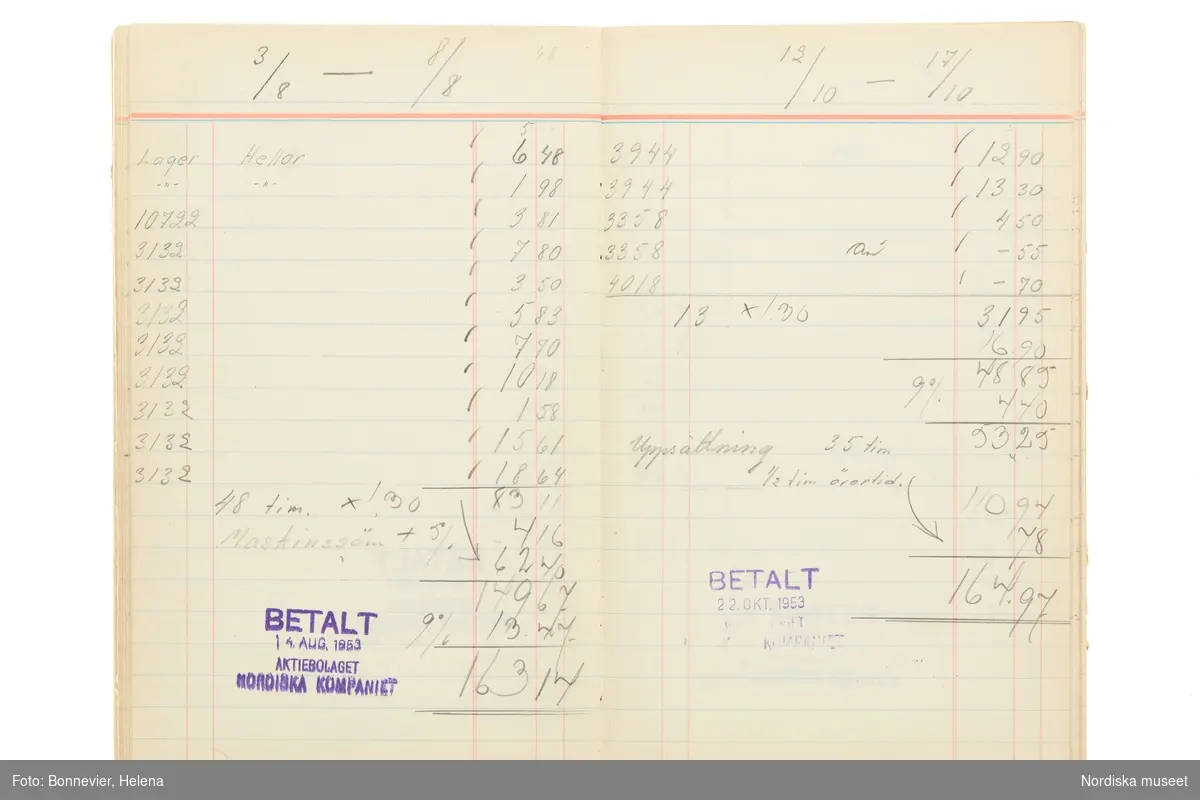 3/8 — 8/8 48
5
Lager Hellar 6 48
-"- -"- 1 98
10722 3 81
3132 7 80
3132 3 50
3132 5 83
3132 7 70
3132 10 18
3132 1 58
3132 15 61
3132 18 64
48 tim. x 1.30 83 11
Maskinssöm + 5% 4 16
62 40
149 67
9% 13.47
163 14
BETALT
14. AUG. 1953
AKTIEBOLAGET
NORDISKA KOMPANIET
12/10 — 17/10
3944 12 90
3944 13 30
3358 4 50
3358 – 55
4018 – 70
13 x 1.30 31 95
16.90
48 85
9% 4 40
53 25
Uppsättning 35 tim
1/2 tim övertid.
110.94
78
164.97
BETALT
22. OKT. 1953
KOMPANIET
Foto: Bonnevier, Helena
Nordiska museet